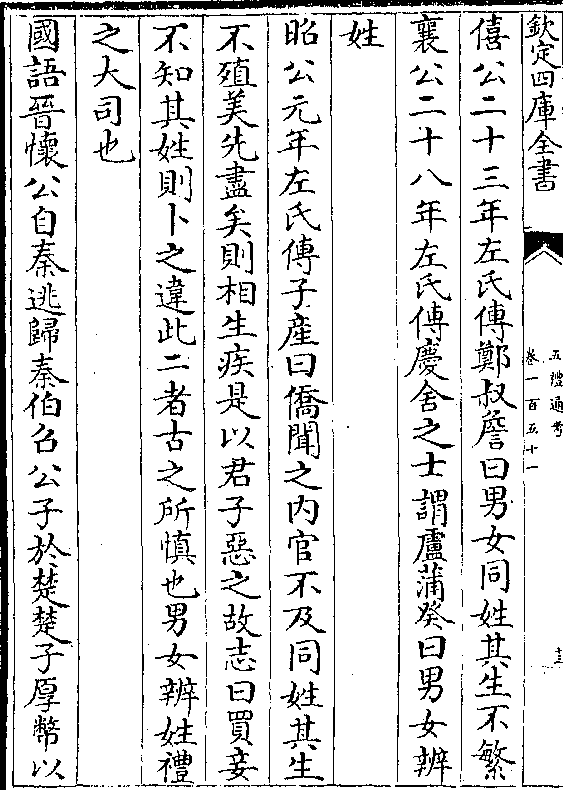 欽定四庫全書
五禮通考
卷一百五十一
十三
僖公二十三年左氏傳鄭叔詹曰男女同姓其生不繁
襄公二十八年左氏傳慶舍之士謂盧蒲癸曰男女辨
姓
昭公元年左氏傳子產曰僑聞之内官不及同姓其生
不殖美先盡矣則相生疾是以君子惡之故志曰買妾
不知其姓則卜之違此二者古之所慎也男女辨姓禮
之大司也
國語晉懷公自秦逃歸秦伯召公子於楚楚子厚幣以